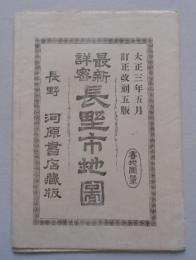 大正三年五月
訂正改刻五版
最新
詳密
長野市地圖
長野 河原書店藏版